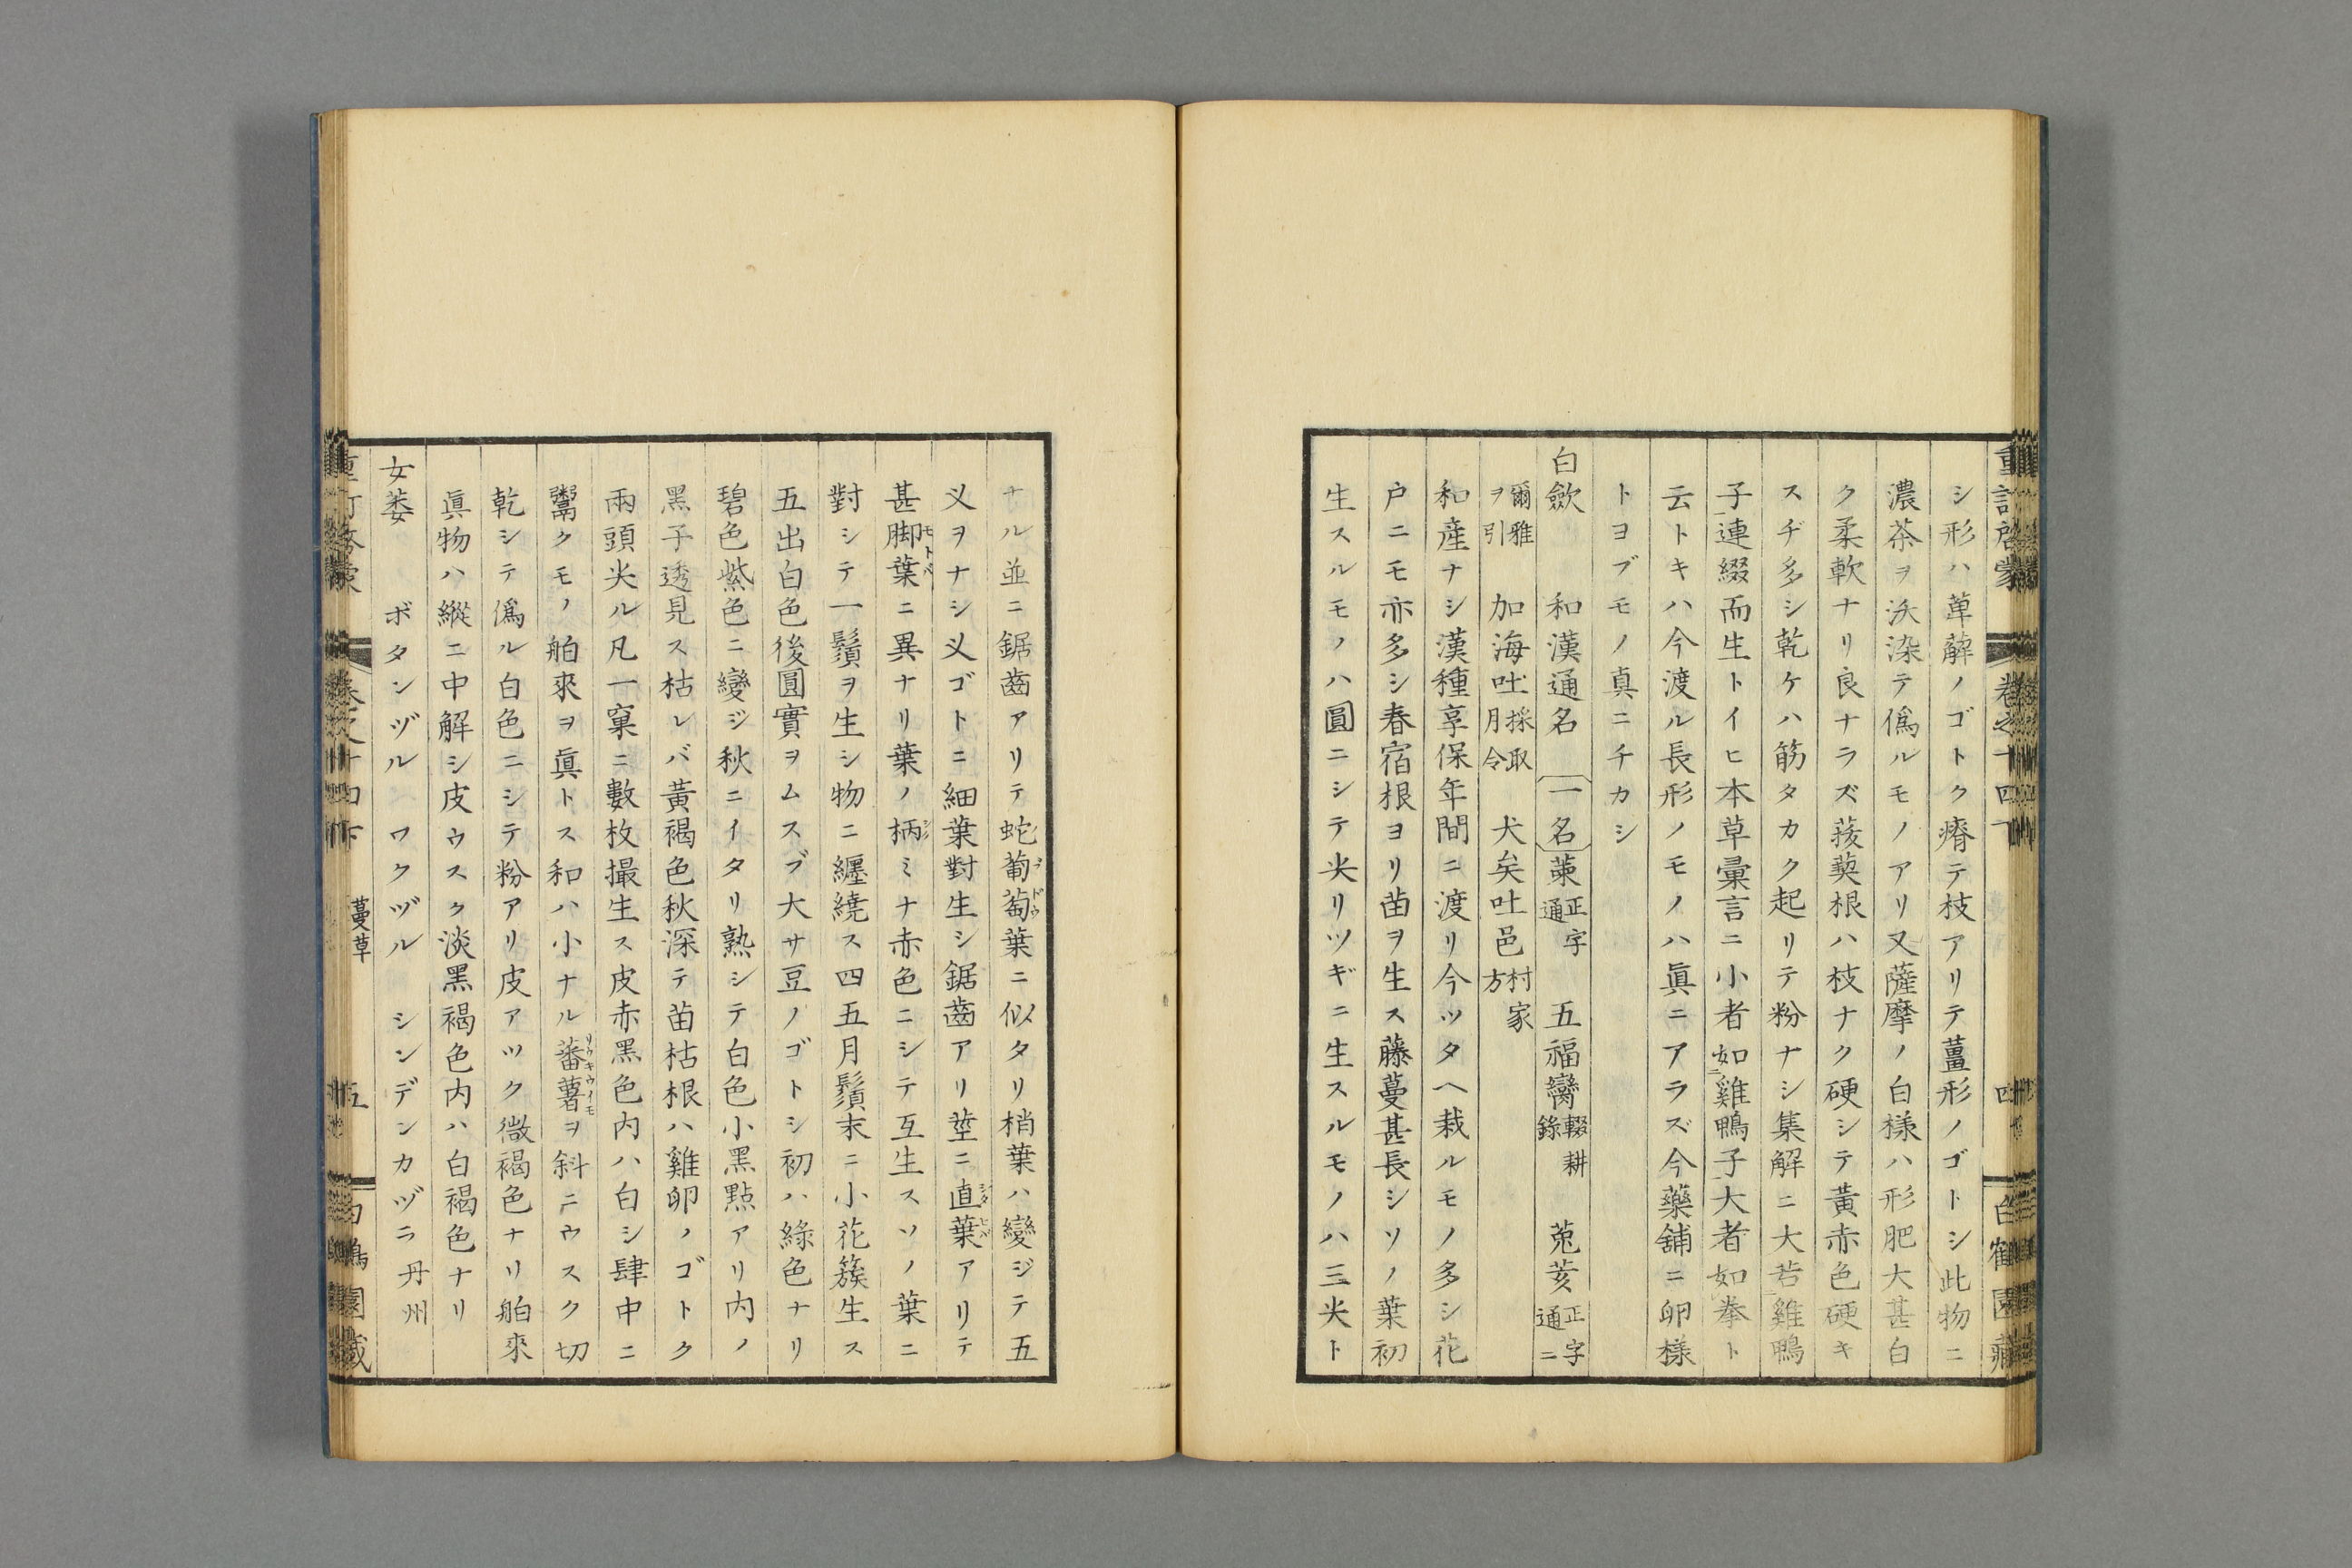 重訂啓蒙 卷之十四下 四 白鶴園藏
シ形ハ萆薢ノゴトク瘠テ枝アリテ薑形ノゴトシ此物ニ
濃茶ヲ沃染テ僞ルモノアリ又薩摩ノ白樣ハ形肥大甚白
ク柔軟ナリ良ナラズ菝葜根ハ枝ナク硬シテ黃赤色硬キ
スヂ多シ乾ケハ筋タカク起リテ粉ナシ集解ニ大若雞鴨
子連綴而生トイヒ本草彙言ニ小者如雞鴨子大者如拳ト
云トキハ今渡ル長形ノモノハ眞ニアラズ今藥舖ニ卵樣
トヨブモノ真ニチカシ
白歛 和漢通名 一名 菄正字通 五福臠輟耕錄 菟荄正字通ニ
爾雅ヲ引 加海吐採取月令 犬矣吐邑村家方
和産ナシ漢種享保年間ニ渡リ今ツタヘ栽ルモノ多シ花
戸ニモ亦多シ春宿根ヨリ苗ヲ生ス藤蔓甚長シソノ葉初
生スルモノハ圓ニシテ尖リツギニ生スルモノハ三尖ト
ナル並ニ鋸齒アリテ蛇葡萄葉ニ似タリ梢葉ハ變ジテ五
义ヲナシ义ゴトニ細葉對生シ鋸齒アリ莖ニ直葉アリテ
甚脚葉モトバニ異ナリ葉ノ柄ミナ赤色ニシテ互生スソノ葉ニ
對シテ一鬚ヲ生シ物ニ纒繞ス四五月鬚末ニ小花簇生ス
五出白色後圓實ヲムスブ大サ豆ノゴトシ初ハ綠色ナリ
碧色紫色ニ變ジ秋ニイタリ熟シテ白色小黑點アリ内ノ
黑子透見ス枯レバ黃褐色秋深テ苗枯根ハ雞卵ノゴトク
兩頭尖ル凡一窠ニ數枚撮生ス皮赤黑色内ハ白シ肆中ニ
鬻クモノ舶來ヲ眞トス和ハ小ナル蕃薯リウキウイモヲ斜ニウスク切
乾シテ僞ル白色ニシテ粉アリ皮アツク微褐色ナリ舶來
眞物ハ縱ニ中解シ皮ウスク淡黑褐色内ハ白褐色ナリ
女萎 ボタンヅル ワクヅル シンデンカヅラ丹州
蔓草 五